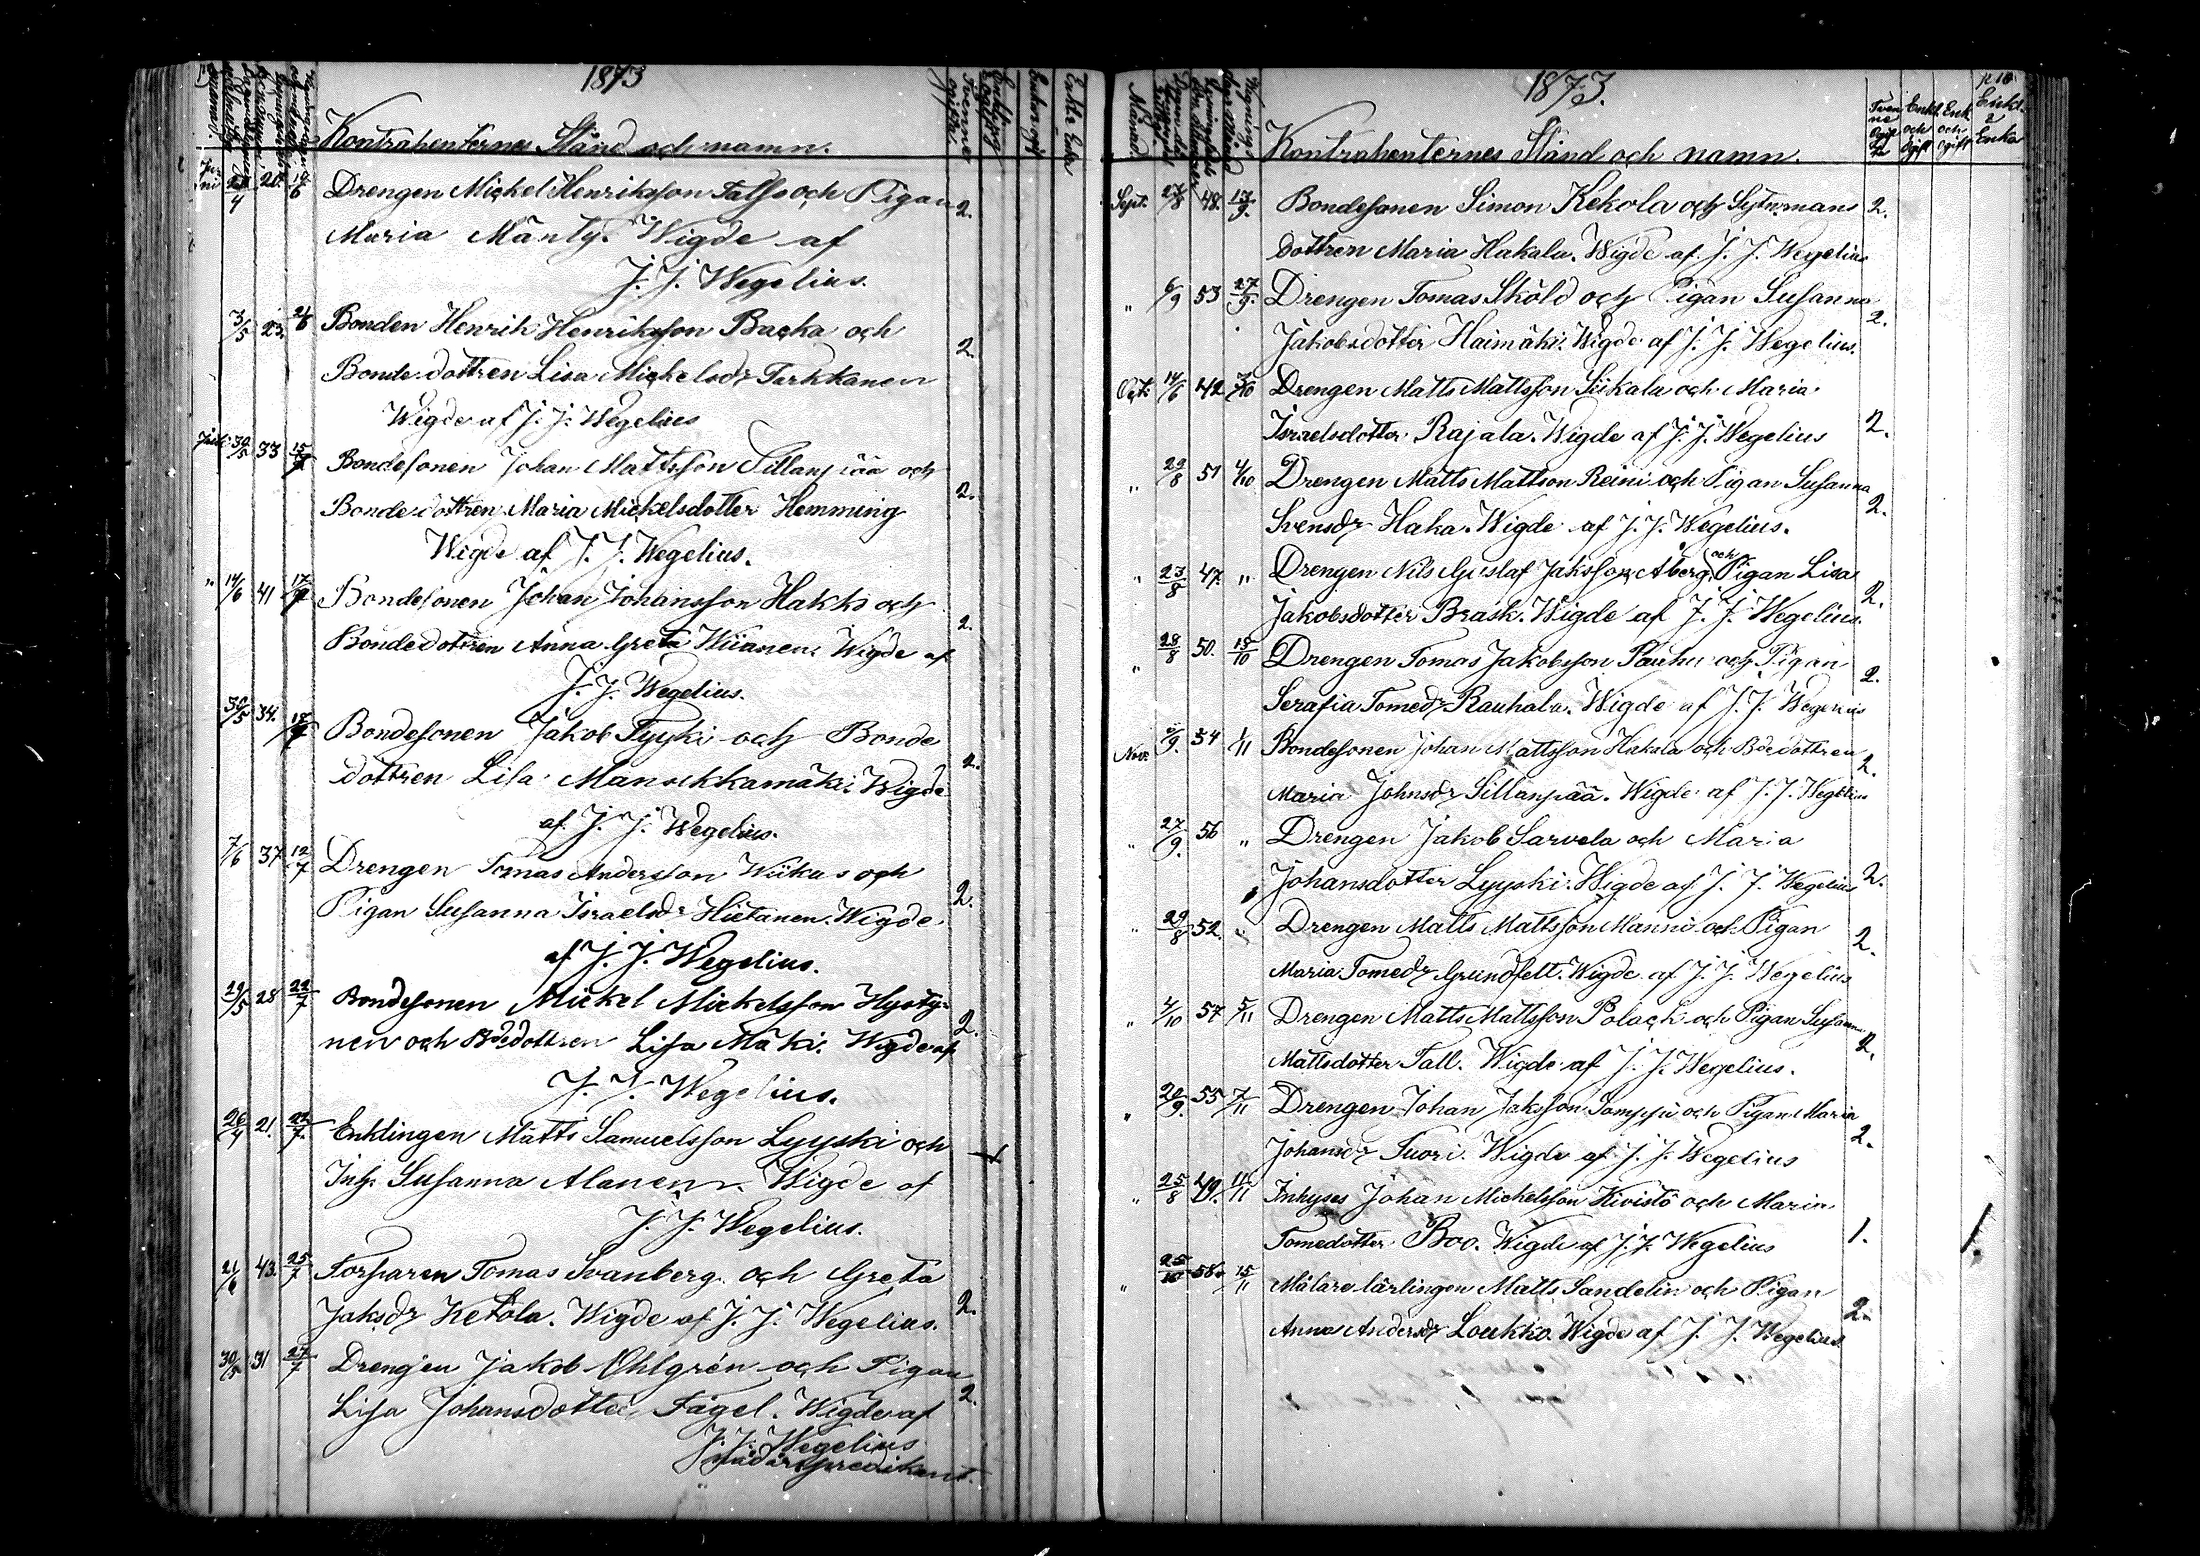 1873
Kontrahenternes Stånd och namn.
Juni 4 20. 19/6 Drengen Mickel Henriksson Falss och Pigan 2.
Maria Mänty. Wigde af
J. J. Wegelius.
3/5 23. 21/6 Bonden Henrik Henriksson Backa och 2.
Bondedottren Lisa Mickelsdr Tarkkanen
Wigde af J. J. Wegelius
Juli 30/5 33 15/7 Bondesonen Johan Mattsson Sillanpää och 2.
Bondedottren Maria Mickelsdotter Hemming
Wigde af J. J. Wegelius.
" 14/6 41 17/7 Bondesonen Johan Johansson Hakko och 2.
Bondedottren Anna Greta Wiianen. Wigde af
J. J. Wegelius.
30/5 34. 18/7 Bondesonen Jakob Tyyki och Bonde 2.
dottren Lisa Manackamäki. Wigde
af J. J. Wegelius.
7/6 37 19/7 Drengen Tomas Andersson Wiikus och 2.
Pigan Susanna Israelsdr Hietanen. Wigde
af J. J. Wegelius.
29/5 28 22/7 Bondesonen Mickel Mickelsson Hyöty- 2.
nen och Bdedottren Lisa Mäki. Wigde af
J. J. Wegelius.
26/4 21. 22/7. Enklingen Matts Samuelsson Lyyski och
Inh. Susanna Alanen. Wigde af
J. J. Wegelius.
21/6 43. 25/7 Torparen Tomas Svanberg och Greta 2.
Jaksdr Ketola. Wigde af J. J. Wegelius.
30/5 31 27/7 Drengen Jakob Ohlgrén och Pigan 2.
Lisa Johansdotter Fågel. Wigde af
J. J. Wegelius
predikant.
1873.
Månad
Kontrahenternes Stånd och namn.
Tven ne Ogif ta
Enkl. och Ogift
Enk. och Ogift
Enkl. a Enka
Sept. 23/8 48. 17/9. Bondesonen Simon Kekola och Sytnmans 2.
dottren Maria Hakala. Wigde af J. J. Wegelius
" 6/9 53 27/9. Drengen Tomas Sköld och Pigan Susanna 2.
Jakobsdotter Haimäki. Wigde af J. J. Wegelius.
Oct. 14/6 42 3/10 Drengen Matts Mattsson Siikala och Maria 2.
Israelsdotter Rajala. Wigde af J. J. Wegelius
" 29/8 51 4/10 Drengen Matts Mattson Reini och Pigan Susanna 2.
Svensdr Haka. Wigde af J. J. Wegelius.
" 23/8 47. " Drengen Nils Gustaf Jaksson Åberg och Pigan Lisa 2.
Jakobsdotter Brask. Wigde af J. J. Wegelius.
" 28/8 50. 15/10 Drengen Tomas Jakobsson Pauhu och Pigan 2.
Serafia Tomedr Rauhala. Wigde af J. J. Wegelius
Nov. 9. 54 1/11 Bondesonen Johan Mattsson Hakala och Bdedottren 2.
Maria Johnsdr Sillanpää. Wigde af J. J. Wegelius
" 27/9. 56 " Drengen Jakob Sarvela och Maria 2.
Johansdotter Lyyski. Wigde af J. J. Wegelius
" 29/8 52. " Drengen Matts Mattsson Mannio och Pigan 2.
Maria Tomedr Grundfelt. Wigde af J. J. Wegelius
" 4/10 57 5/11 Drengen Matts Mattsson Polack och Pigan Susanna 2.
Mattsdotter Tall. Wigde af J. J. Wegelius.
" 20/9. 55 7/11 Drengen Johan Jaksson Samppu och Pigan Maria 2.
Johansdr Tuori. Wigde af J. J. Wegelius
" 25/8 49. 11/11 Inhyses Johan Mickelsson Kivistö och Maria 1.
Tomedotter Boo. Wigde af J. J. Wegelius
" 25/10 58. 15/11 Målare lärlingen Matts Sandelin och Pigan 2.
Anna Andersdr Loukko. Wigde af J. J. Wegelius